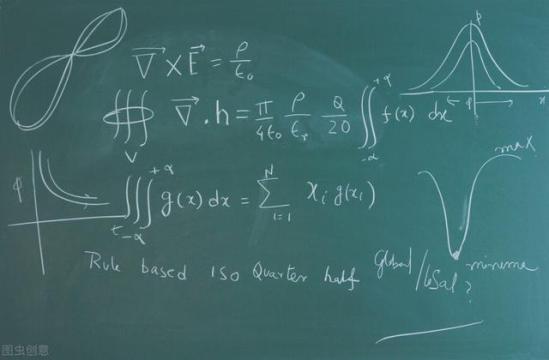 ∇⃗ × E⃗ = ρ/ε₀
∯ᵥ ∇⃗ . h = π/4ε₀ ρ/εᵣ Q/20 ∬₋α⁺α f(x) dx
∭₋α⁺α g(x) dx = Σᵢ₌₁ᴺ xᵢ g(xᵢ)
max
Rule based ISO Quarter half Global / local minima ?
图虫创意